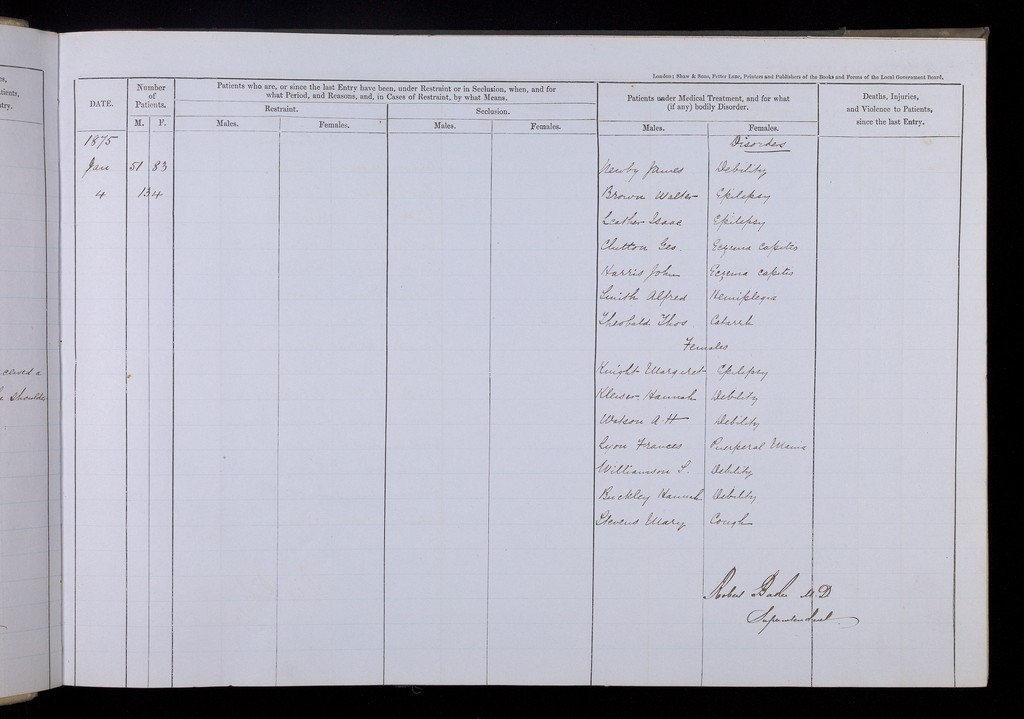 es,
tients,
try.
ceived a
shoulder
London: Shaw & Sons, Fetter Lane, Printers and Publishers of the Books and Forms of the Local Government Board.
DATE.
Number of Patients.
M. F.
Patients who are, or since the last Entry have been, under Restraint or in Seclusion, when, and for
what Period, and Reasons, and, in Cases of Restraint, by what Means.
Restraint.
Seclusion.
Males. Females. Males. Females.
Patients under Medical Treatment, and for what
(if any) bodily Disorder.
Males. Females.
Deaths, Injuries,
and Violence to Patients,
since the last Entry.
1875 Disorders
Jan 51 83 Newby James Debility
4 134 Brown Walter Epilepsy
Leather Isaac Epilepsy
Clutton Geo. Eczema capitis
Harris John Eczema capitis
Smith Alfred Hemiplegia
Theobald Thos Catarrh
Females
Knight Margaret Epilepsy
Kleiser Hannah Debility
Watson A. H Debility
Lyon Frances Puerperal Mania
Williamson S. Debility
Buckley Hannah Debility
Stevens Mary Cough
Robert Baker M.D
Superintendent